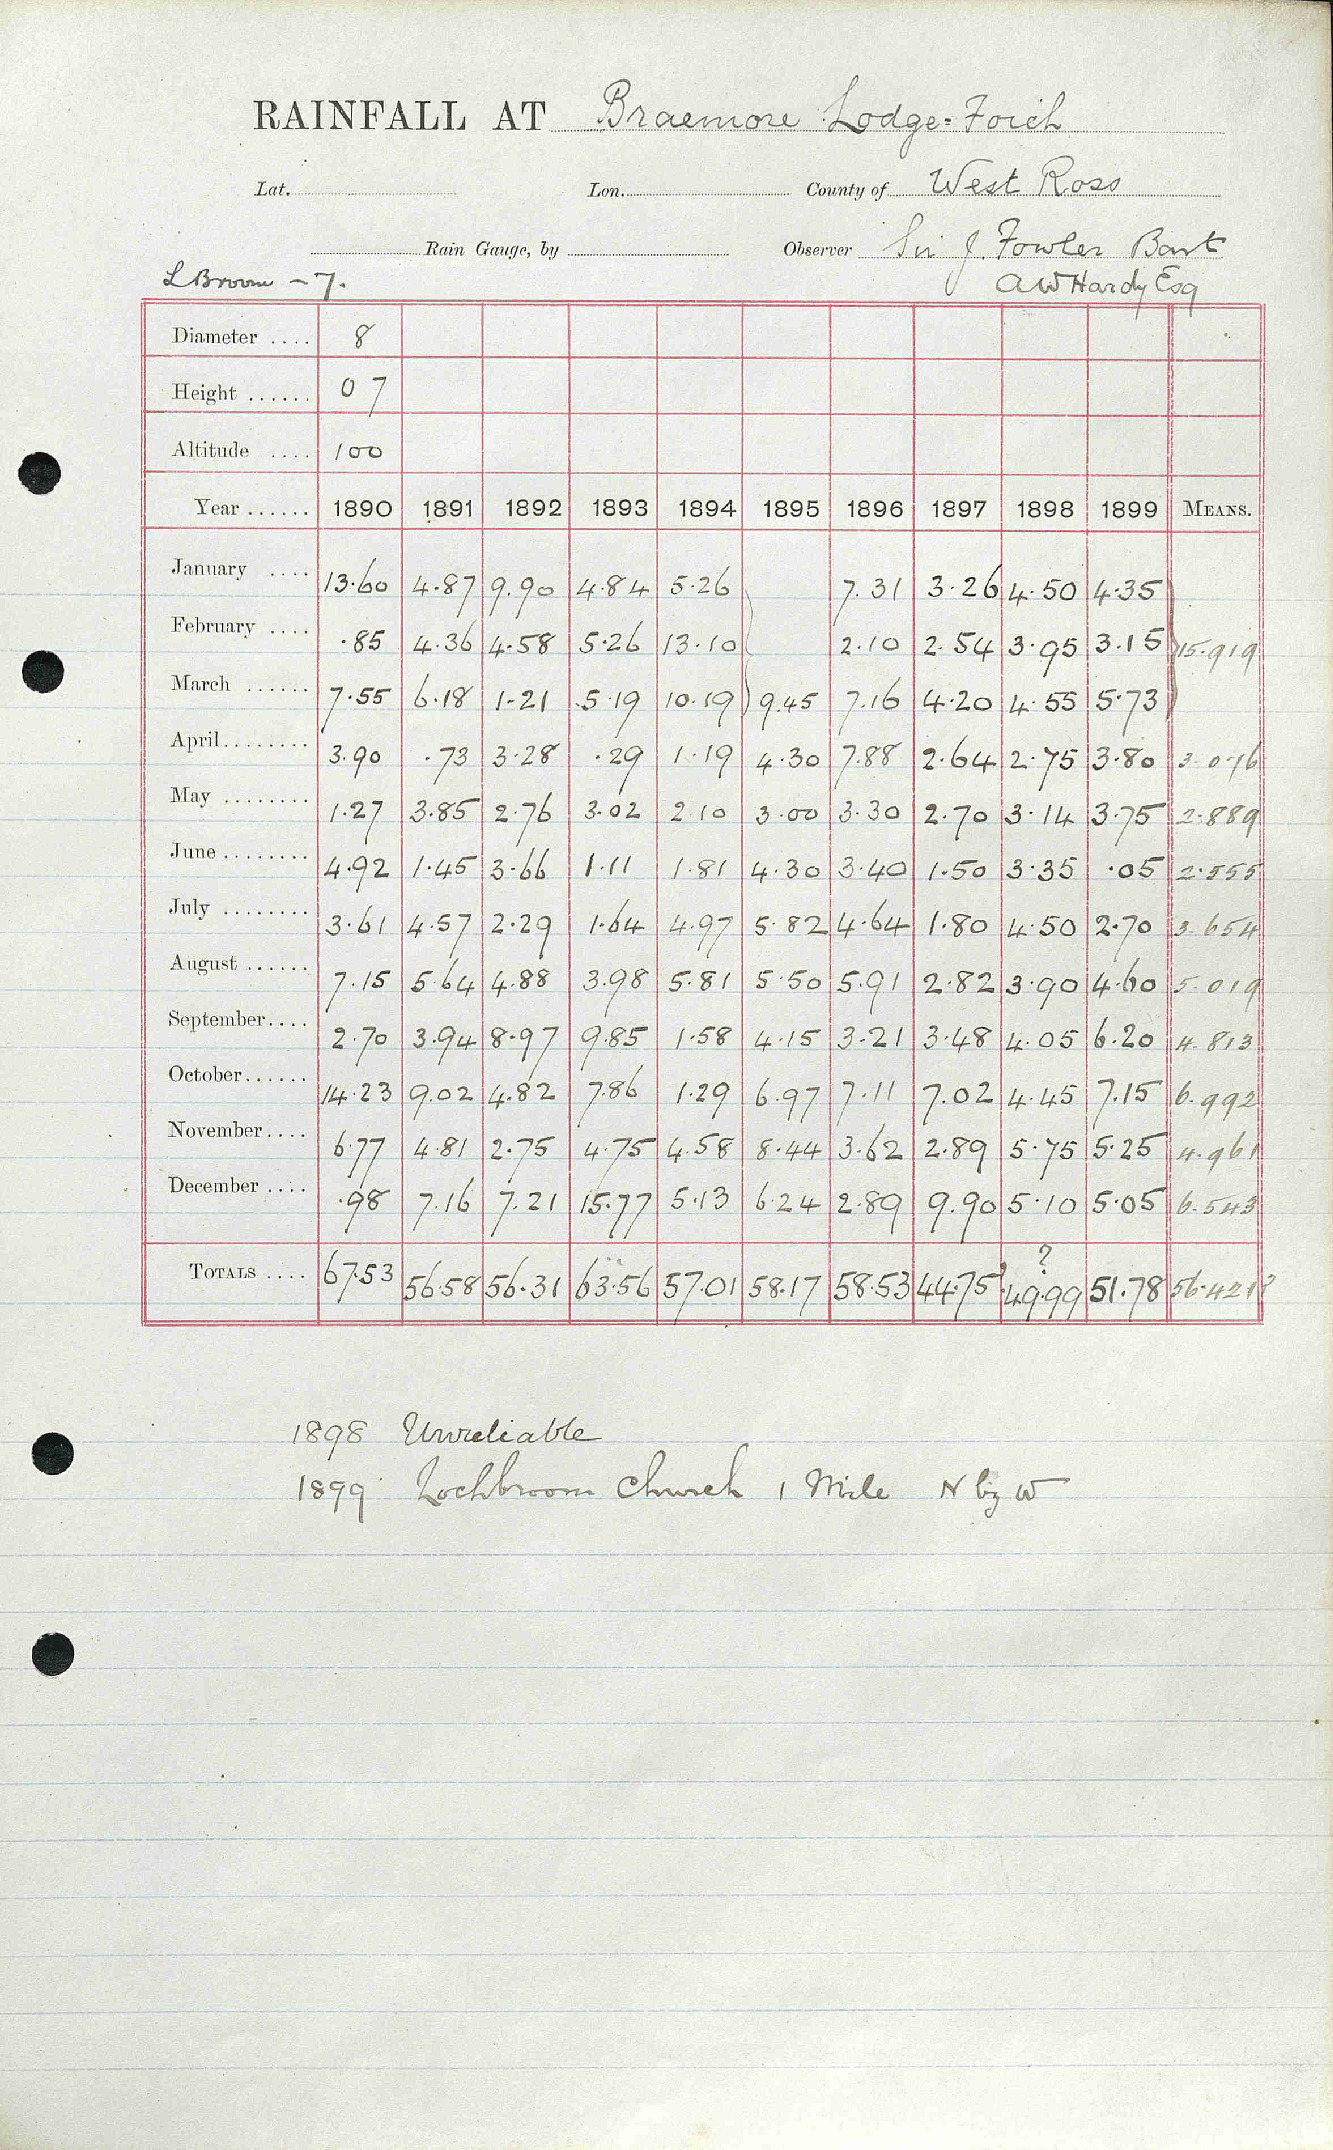 RAINFALL AT Braemore Lodge = Foich
Lat. Lon. County of West Ross
Rain Gauge, by Observer Sir J. Fowler Bart
L Broom - 7. A W Hardy Esq
Diameter .... 8
Height ...... 0 7
Altitude .... 100
Year ...... 1890 1891 1892 1893 1894 1895 1896 1897 1898 1899 MEANS.
January .... 13.60 4.87 9.90 4.84 5.26 7.31 3.26 4.50 4.35
February .... .85 4.36 4.58 5.26 13.10 2.10 2.54 3.95 3.15 15.919
March ...... 7.55 6.18 1.21 5.19 10.19 9.45 7.16 4.20 4.55 5.73
April ........ 3.90 .73 3.28 .29 1.19 4.30 7.88 2.64 2.75 3.80 3.076
May ........ 1.27 3.85 2.76 3.02 2.10 3.00 3.30 2.70 3.14 3.75 2.889
June ........ 4.92 1.45 3.66 1.11 1.81 4.30 3.40 1.50 3.35 .05 2.555
July ........ 3.61 4.57 2.29 1.64 4.97 5.82 4.64 1.80 4.50 2.70 3.654
August ...... 7.15 5.64 4.88 3.98 5.81 5.50 5.91 2.82 3.90 4.60 5.019
September.... 2.70 3.94 8.97 9.85 1.58 4.15 3.21 3.48 4.05 6.20 4.813
October...... 14.23 9.02 4.82 7.86 1.29 6.97 7.11 7.02 4.45 7.15 6.992
November.... 6.77 4.81 2.75 4.75 4.58 8.44 3.62 2.89 5.75 5.25 4.961
December .... .98 7.16 7.21 15.77 5.13 6.24 2.89 9.90 5.10 5.05 6.543
TOTALS .... 67.53 56.58 56.31 63.56 57.01 58.17 58.53 44.75? 49.99? 51.78 56.421?
1898 Unreliable
1899 Lochbroom Church 1 Mile N by W